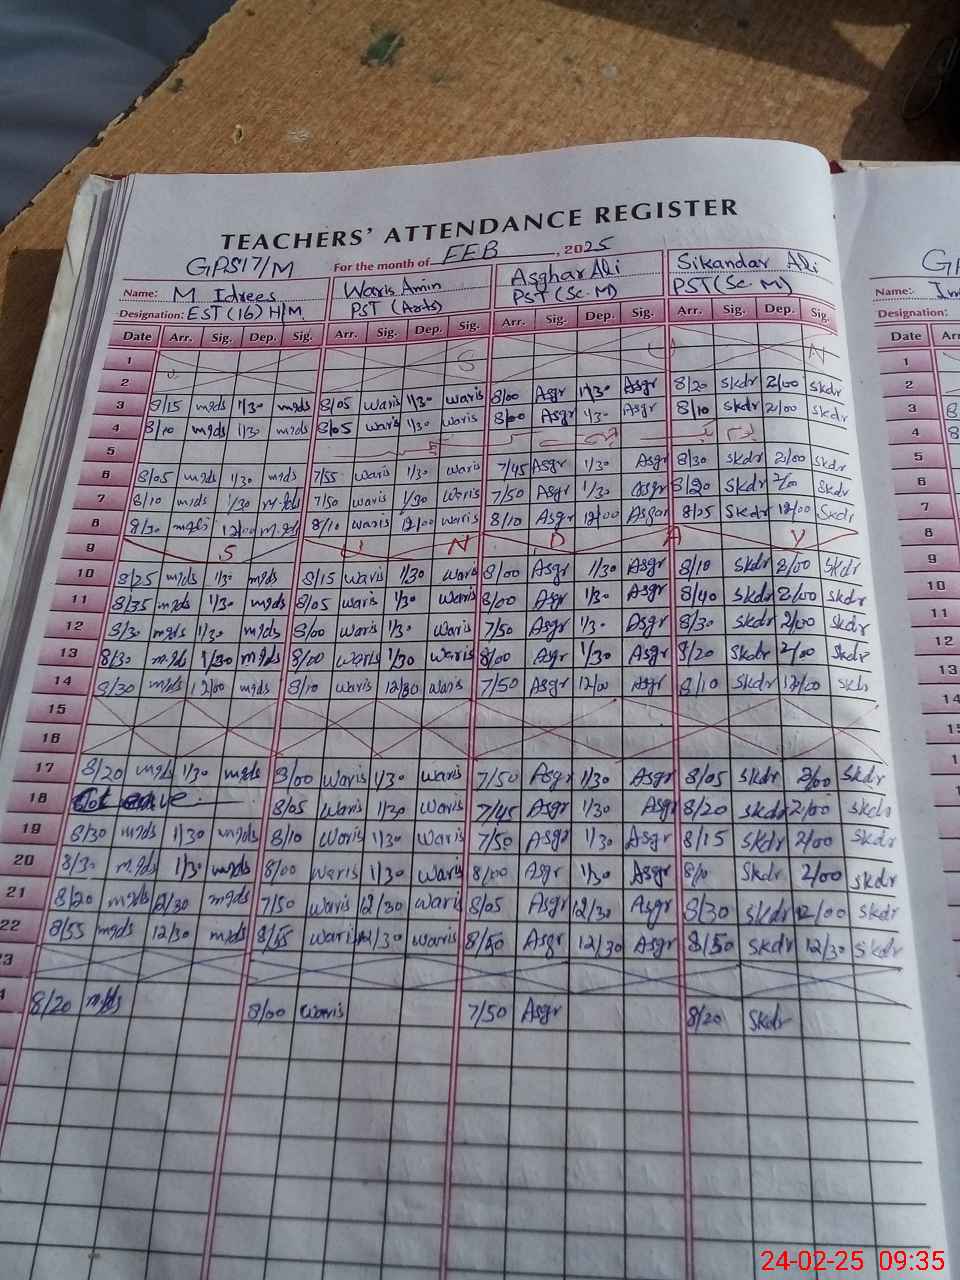 TEACHERS' ATTENDANCE REGISTER
GPS17/M For the month of FEB, 2025
Name: M Idrees Waris Amin Asghar Ali Sikandar Ali
Designation: EST (16) H/M PST (Arts) PST (Sc. M) PST (Sc. M)
Date Arr. Sig. Dep. Sig. Arr. Sig. Dep. Sig. Arr. Sig. Dep. Sig. Arr. Sig. Dep. Sig.
1 S U N
2
3 8/15 mgds 1/30 mgds 8/05 waris 1/30 waris 8/00 Asgr 1/30 Asgr 8/20 Skdr 2/00 Skdr
4 8/10 mgds 1/30 mgds 8/05 waris 1/30 waris 8/00 Asgr 1/30 Asgr 8/10 Skdr 2/00 Skdr
5
6 8/05 mgds 1/30 mgds 7/55 waris 1/30 waris 7/45 Asgr 1/30 Asgr 8/30 Skdr 2/00 Skdr
7 8/10 mgds 1/30 mgds 7/50 waris 1/30 waris 7/50 Asgr 1/30 Asgr 8/20 Skdr Skdr
8 8/30 mgds 12/00 mgds 8/10 waris 12/00 waris 8/10 Asgr 12/00 Asgar 8/25 Skdr 12/00 Skdr
9 S U N D A Y
10 8/25 mgds 1/30 mgds 8/15 waris 1/30 waris 8/00 Asgr 1/30 Asgr 8/10 Skdr 2/00 Skdr
11 8/35 mgds 1/30 mgds 8/05 waris 1/30 waris 8/00 Asgr 1/30 Asgr 8/40 Skdr 2/00 Skdr
12 8/30 mgds 1/30 mgds 8/00 waris 1/30 waris 7/50 Asgr 1/30 Asgr 8/30 Skdr 2/00 Skdr
13 8/30 mgds 1/30 mgds 8/00 waris 1/30 waris 8/00 Asgr 1/30 Asgr 8/20 Skdr 2/00 Skdr
14 8/30 mgds 12/00 mgds 8/10 waris 12/30 waris 7/50 Asgr 12/00 Asgr 8/10 Skdr 12/00 Skdr
15
16
17 8/20 mgds 1/30 mgds 8/00 waris 1/30 waris 7/50 Asgr 1/30 Asgr 8/05 Skdr 2/00 Skdr
18 8/05 waris 1/30 waris 7/45 Asgr 1/30 Asgr 8/20 Skdr 2/00 Skdr
19 8/30 mgds 1/30 mgds 8/10 waris 1/30 waris 7/50 Asgr 1/30 Asgr 8/15 Skdr 2/00 Skdr
20 8/30 mgds 1/30 mgds 8/00 waris 1/30 waris 8/00 Asgr 1/30 Asgr Skdr 2/00 Skdr
21 8/20 mgds 12/30 mgds 7/50 waris 12/30 waris 8/05 Asgr 12/30 Asgr 8/30 Skdr 12/00 Skdr
22 8/55 mgds 12/30 mgds 8/55 waris 12/30 waris 8/50 Asgr 12/30 Asgr 8/50 Skdr 12/30 Skdr
23
8/20 mgds 8/00 waris 7/50 Asgr 8/20 Skdr
Name:
Designation:
Date
1
2
3
4
5
6
7
8
9
10
11
12
13
14
24-02-25 09:35